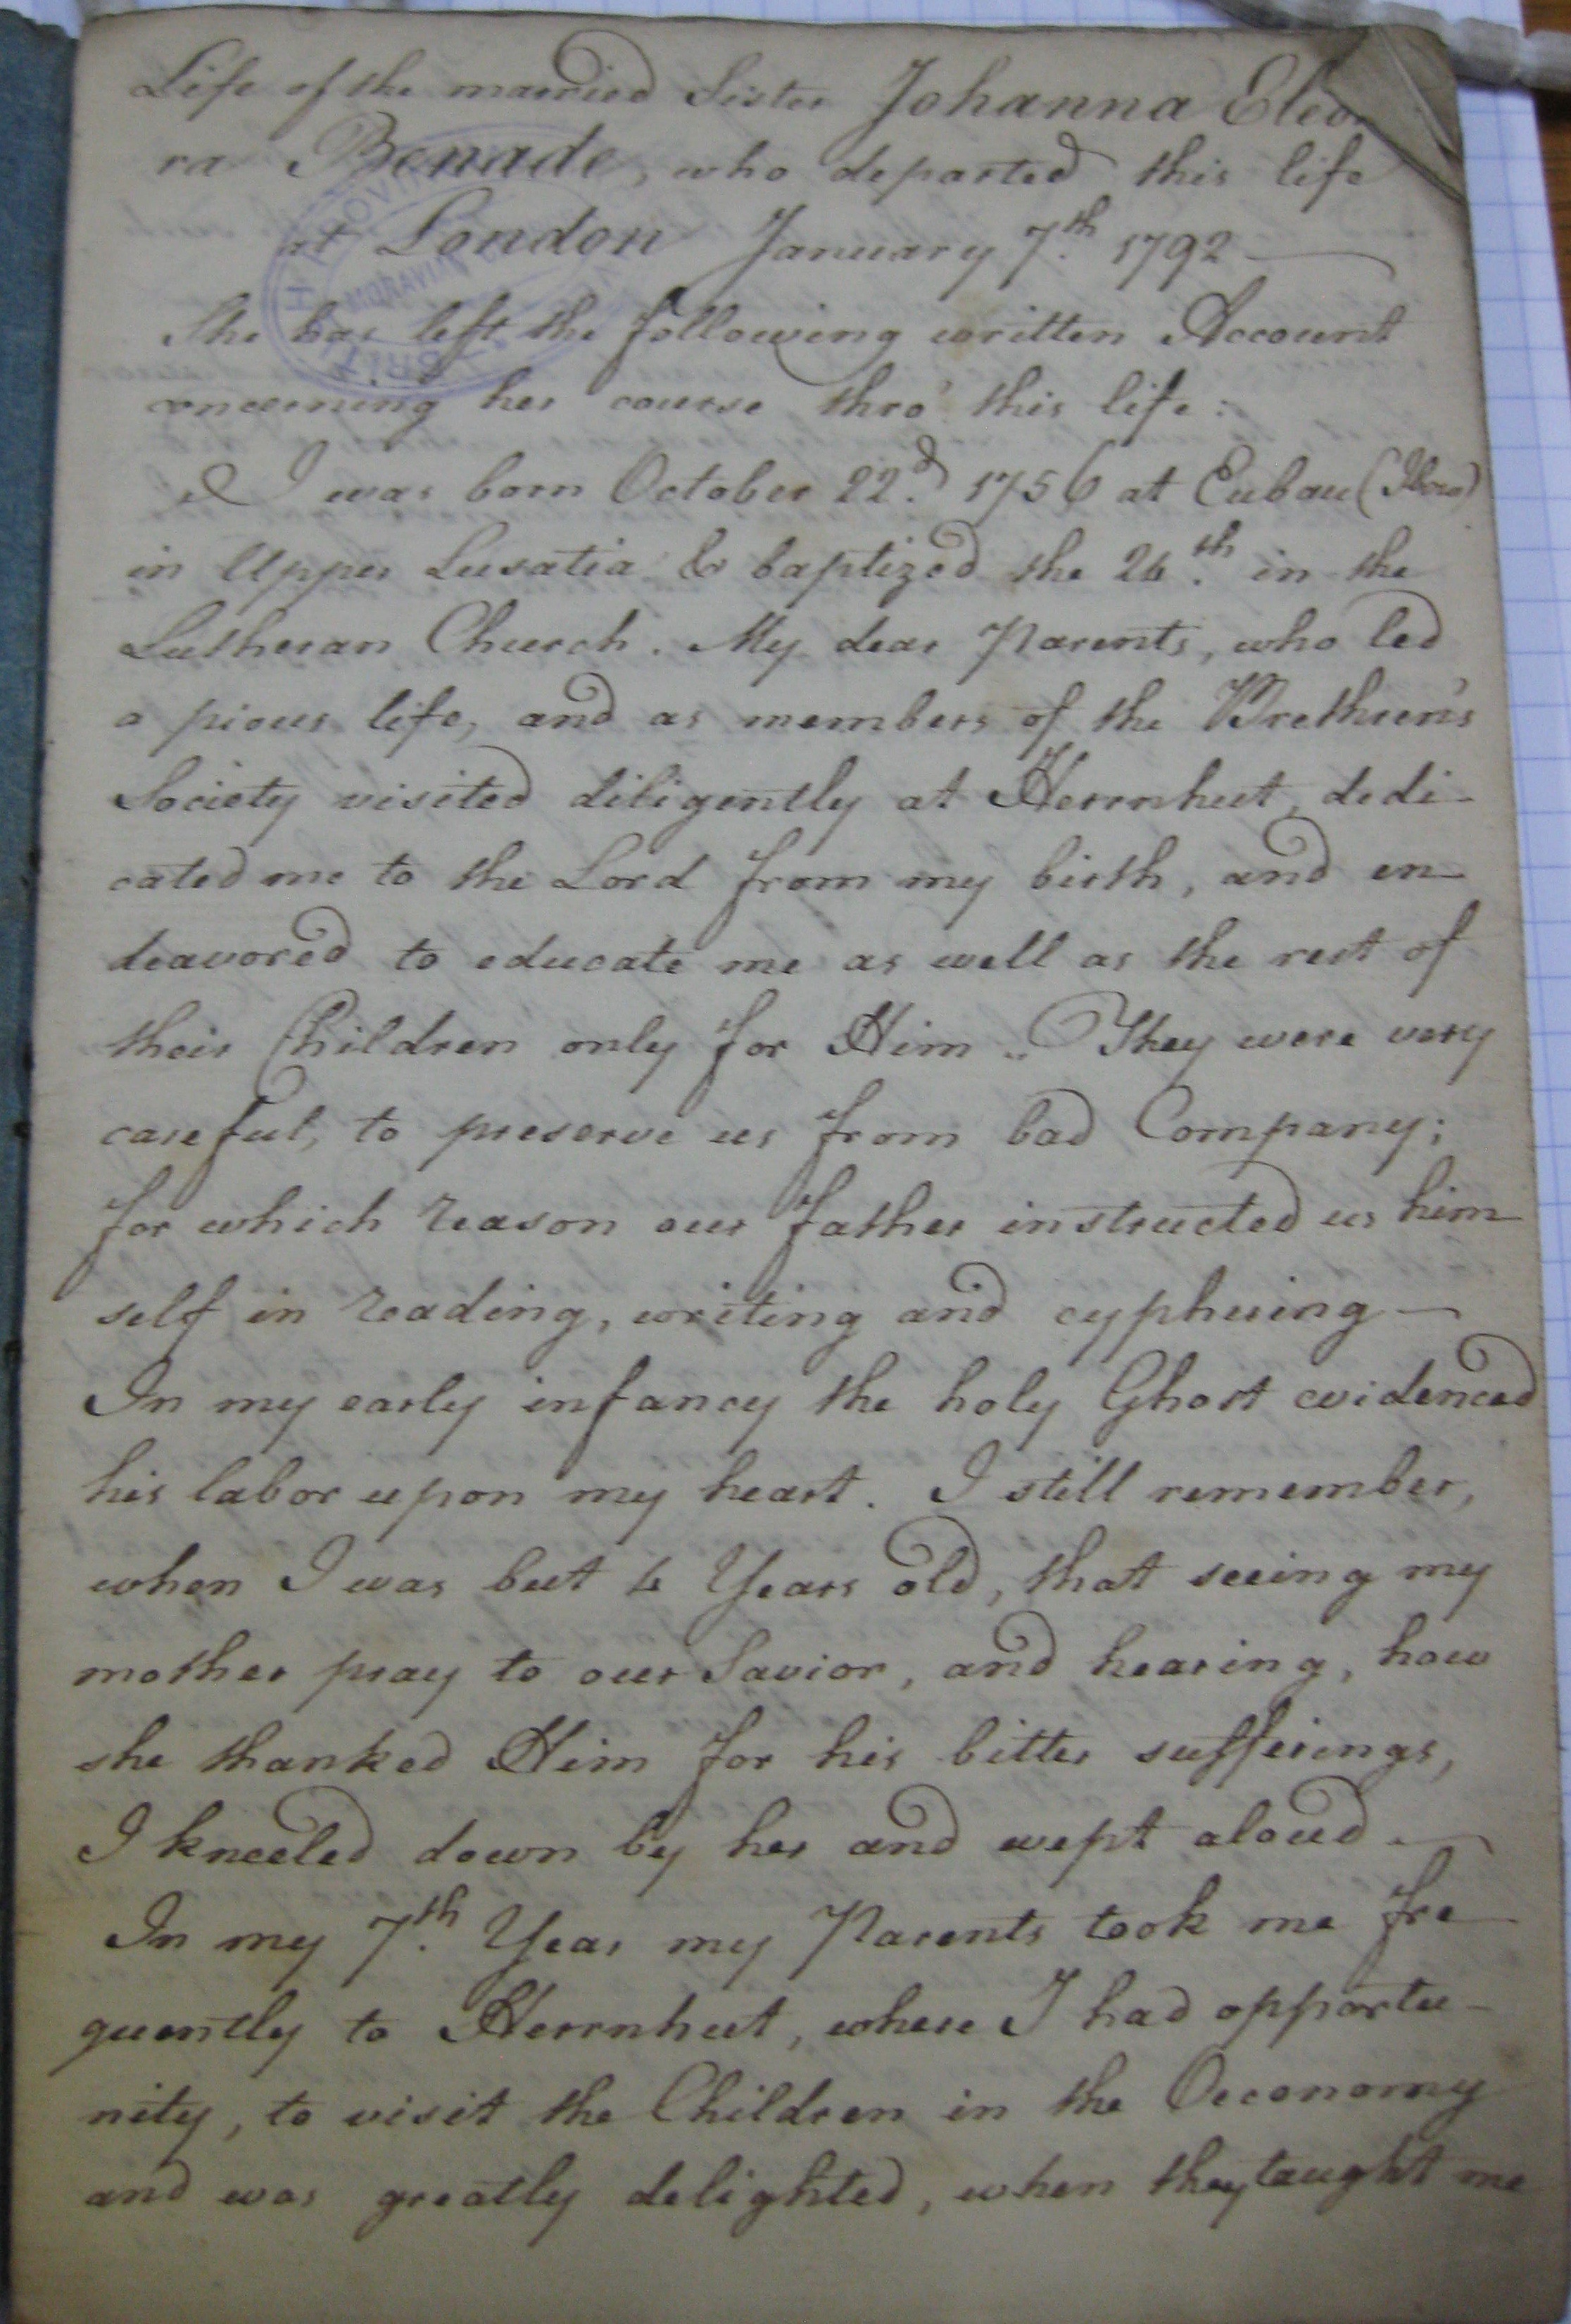 Life of the married Sister Johanna Eleo
ra Benade, who departed this life
at London January 7th. 1792
She has left the following written Account
concerning her course thro' this life:
I was born October 22d. 1756 at Eubau
in Upper Lusatia & baptized the 24th. in the
Lutheran Church. My dear Parents, who led
a pious life, and as members of the Brethren's
Society visited diligently at Herrnhut, dedi-
cated me to the Lord from my birth, and en-
deavored to educate me as well as the rest of
their Children only for Him. They were very
careful, to preserve us from bad Company;
for which reason our father instructed us him-
self in reading, writing and cyphering —
In my early infancy the holy Ghost evidenced
his labor upon my heart. I still remember,
when I was but 4 Years old, that seeing my
mother pray to our Savior, and hearing, how
she thanked Him for his bitter sufferings,
I kneeled down by her and wept aloud. —
In my 7th. Year my Parents took me fre-
quently to Herrnhut, where I had opportu-
nity, to visit the Children in the Oeconomy
and was greatly delighted, when they taught me